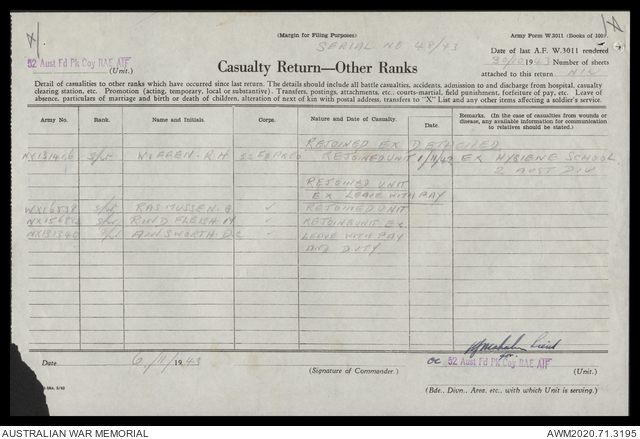 (Margin for Filing Purposes)
Army Form W.3011 (Books of 100)
SERIAL NO 48/43
Date of last A.F. W.3011 rendered
30/10 1943 Number of sheets
attached to this return NIL
52 Aust Fd Pk Coy RAE AIF
(Unit.)
Casualty Return—Other Ranks
Detail of casualties to other ranks which have occurred since last return. The details should include all battle casualties, accidents, admission and discharge from hospital, casualty
clearing station, etc. Promotion (acting, temporary, local or substantive). Transfers, postings, attachments, etc., courts-martial, field punishment, forfeiture of pay, etc. Leave of
absence, particulars of marriage and birth or death of children, alteration of next of kin with postal address, transfers to "X" List and any other items affecting a soldier's service.
Army No. Rank. Name and Initials. Corps. Nature and Date of Casualty. Date. Remarks. (In the case of casualties from wounds or
disease, any available information for communication
to relatives should be stated.)
REJOINED EX DETACHED
Spr WIFFEN. R.H REJOINED UNIT 1/11/43 EX HYGIENE SCHOOL
2 AUST DIV
REJOINED UNIT
EX LEAVE WITH PAY
Spr RASMUSSEN. REJOINED UNIT
Spr RUNDFLEISH REJOINED UNIT EX
AINSWORTH D.C LEAVE WITH PAY
AND DUTY.
Date 6/11/1943
(Signature of Commander.)
OC 52 Aust Fd Pk Coy RAE AIF
(Unit.)
(Bde., Divn., Area, etc., with which Unit is serving.)
AUSTRALIAN WAR MEMORIAL
AWM2020.71.3195